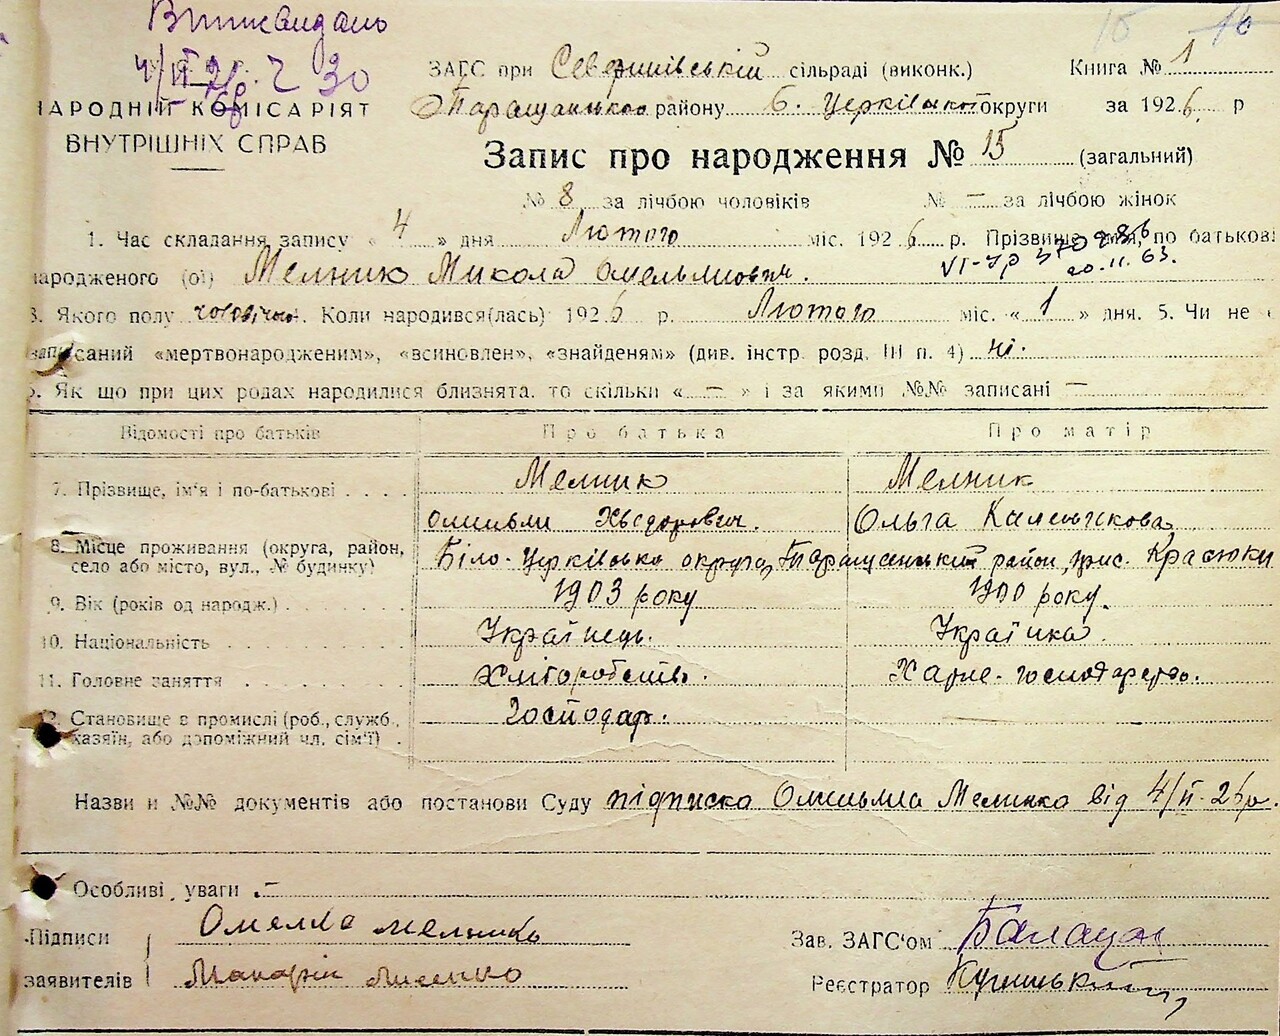 Витяг видано
4/II 26 р. Ч 30
НАРОДНІЙ КОМІСАРІЯТ
ВНУТРІШНІХ СПРАВ
15 16
ЗАГС при Северинівській сільраді (виконк.) Книга № 1
Таращанського району Б. Церківської округи за 1926 р
Запис про народження № 15 (загальний)
№ 8 за лічбою чоловіків № — за лічбою жінок
1. Час складання запису « 4 » дня Лютого міс. 1926 р. Прізвище, ім'я, по батькові
VI-УР 20.11.63.
народженого (ої) Мелник Микола Омельянович.
3. Якого полу чоловічого. Коли народився(лась) 1926 р. Лютого міс. « 1 » дня. 5. Чи не
записаний «мертвонародженим», «всиновлен», «знайденям» (див. інстр. розд. III п. 4) ні.
6. Як що при цих родах народилися близнята, то скільки « — » і за якими №№ записані —
Відомості про батьків Про батька Про матір
7. Прізвище, ім'я і по-батькові Мелник Мелник
Омельян Хведорович. Ольга
8. Місце проживання (округа, район, село або місто, вул., № будинку) Біло-Церківська округа, Таращанський район, Красюки
9. Вік (років од народж.) 1903 року 1900 року.
10. Національність Українець. Українка.
11. Головне заняття Хліборобство. Харче-господарство.
12. Становище в промислі (роб., служб., хазяїн, або допоміжний чл. сім'ї) Господар. —
Назви и №№ документів або постанови Суду підписка Омельяна Мелника від 4/II-26 р.
Особливі уваги —
Підписи Омелко мелникь Зав. ЗАГС'ом
заявителів Макарій Лисенко Реєстратор